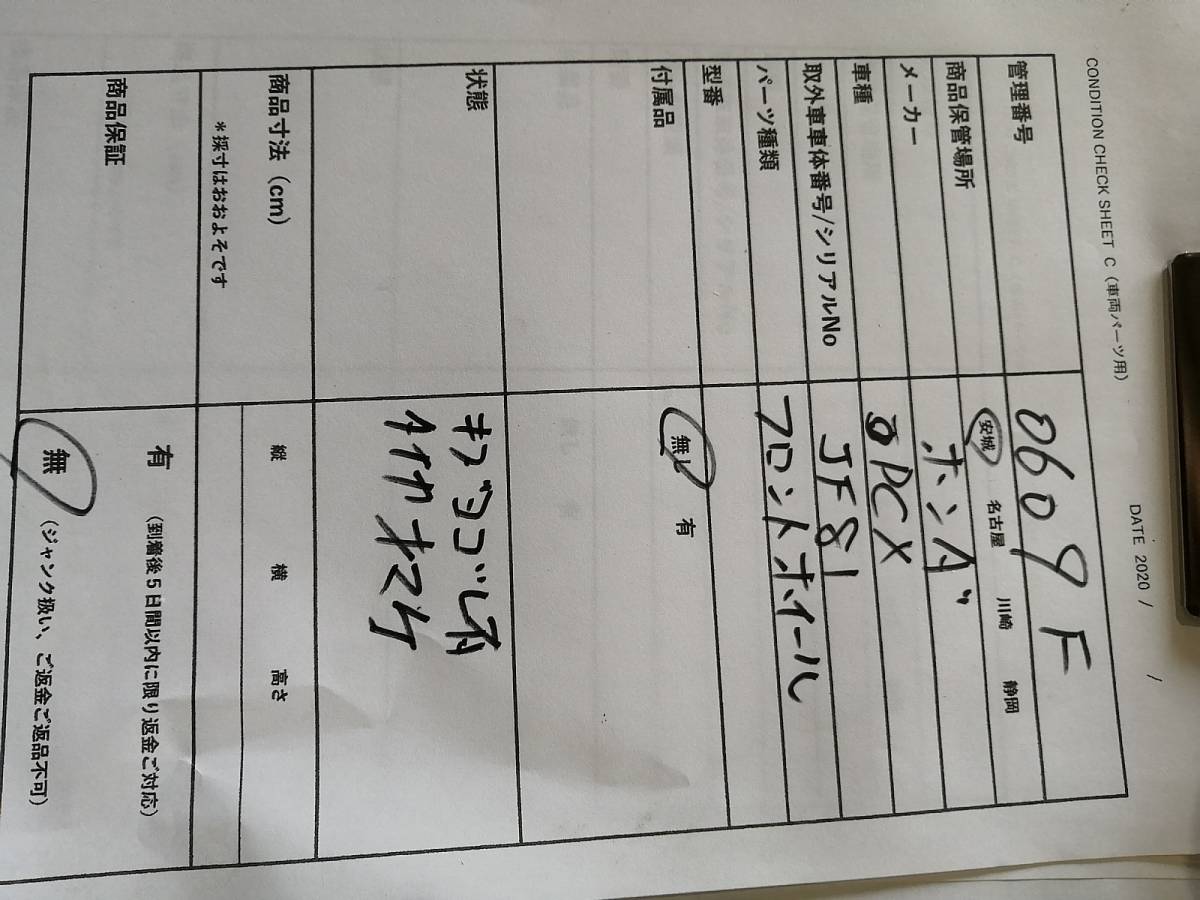 CONDITION CHECK SHEET C（車両パーツ用） DATE 2020 / /
管理番号 0609 F
商品保管場所 安城 名古屋 川崎 静岡
メーカー ホンダ
車種 PCX
取外車車体番号/シリアルNo JF81
パーツ種類 フロントホイール
型番
付属品 無 有
状態 キズヨゴレ有
タイヤオマケ
商品寸法（cm） 縦 横 高さ
＊採寸はおおよそです
商品保証 有 （到着後５日間以内に限り返金ご対応）
無 （ジャンク扱い、ご返金ご返品不可）